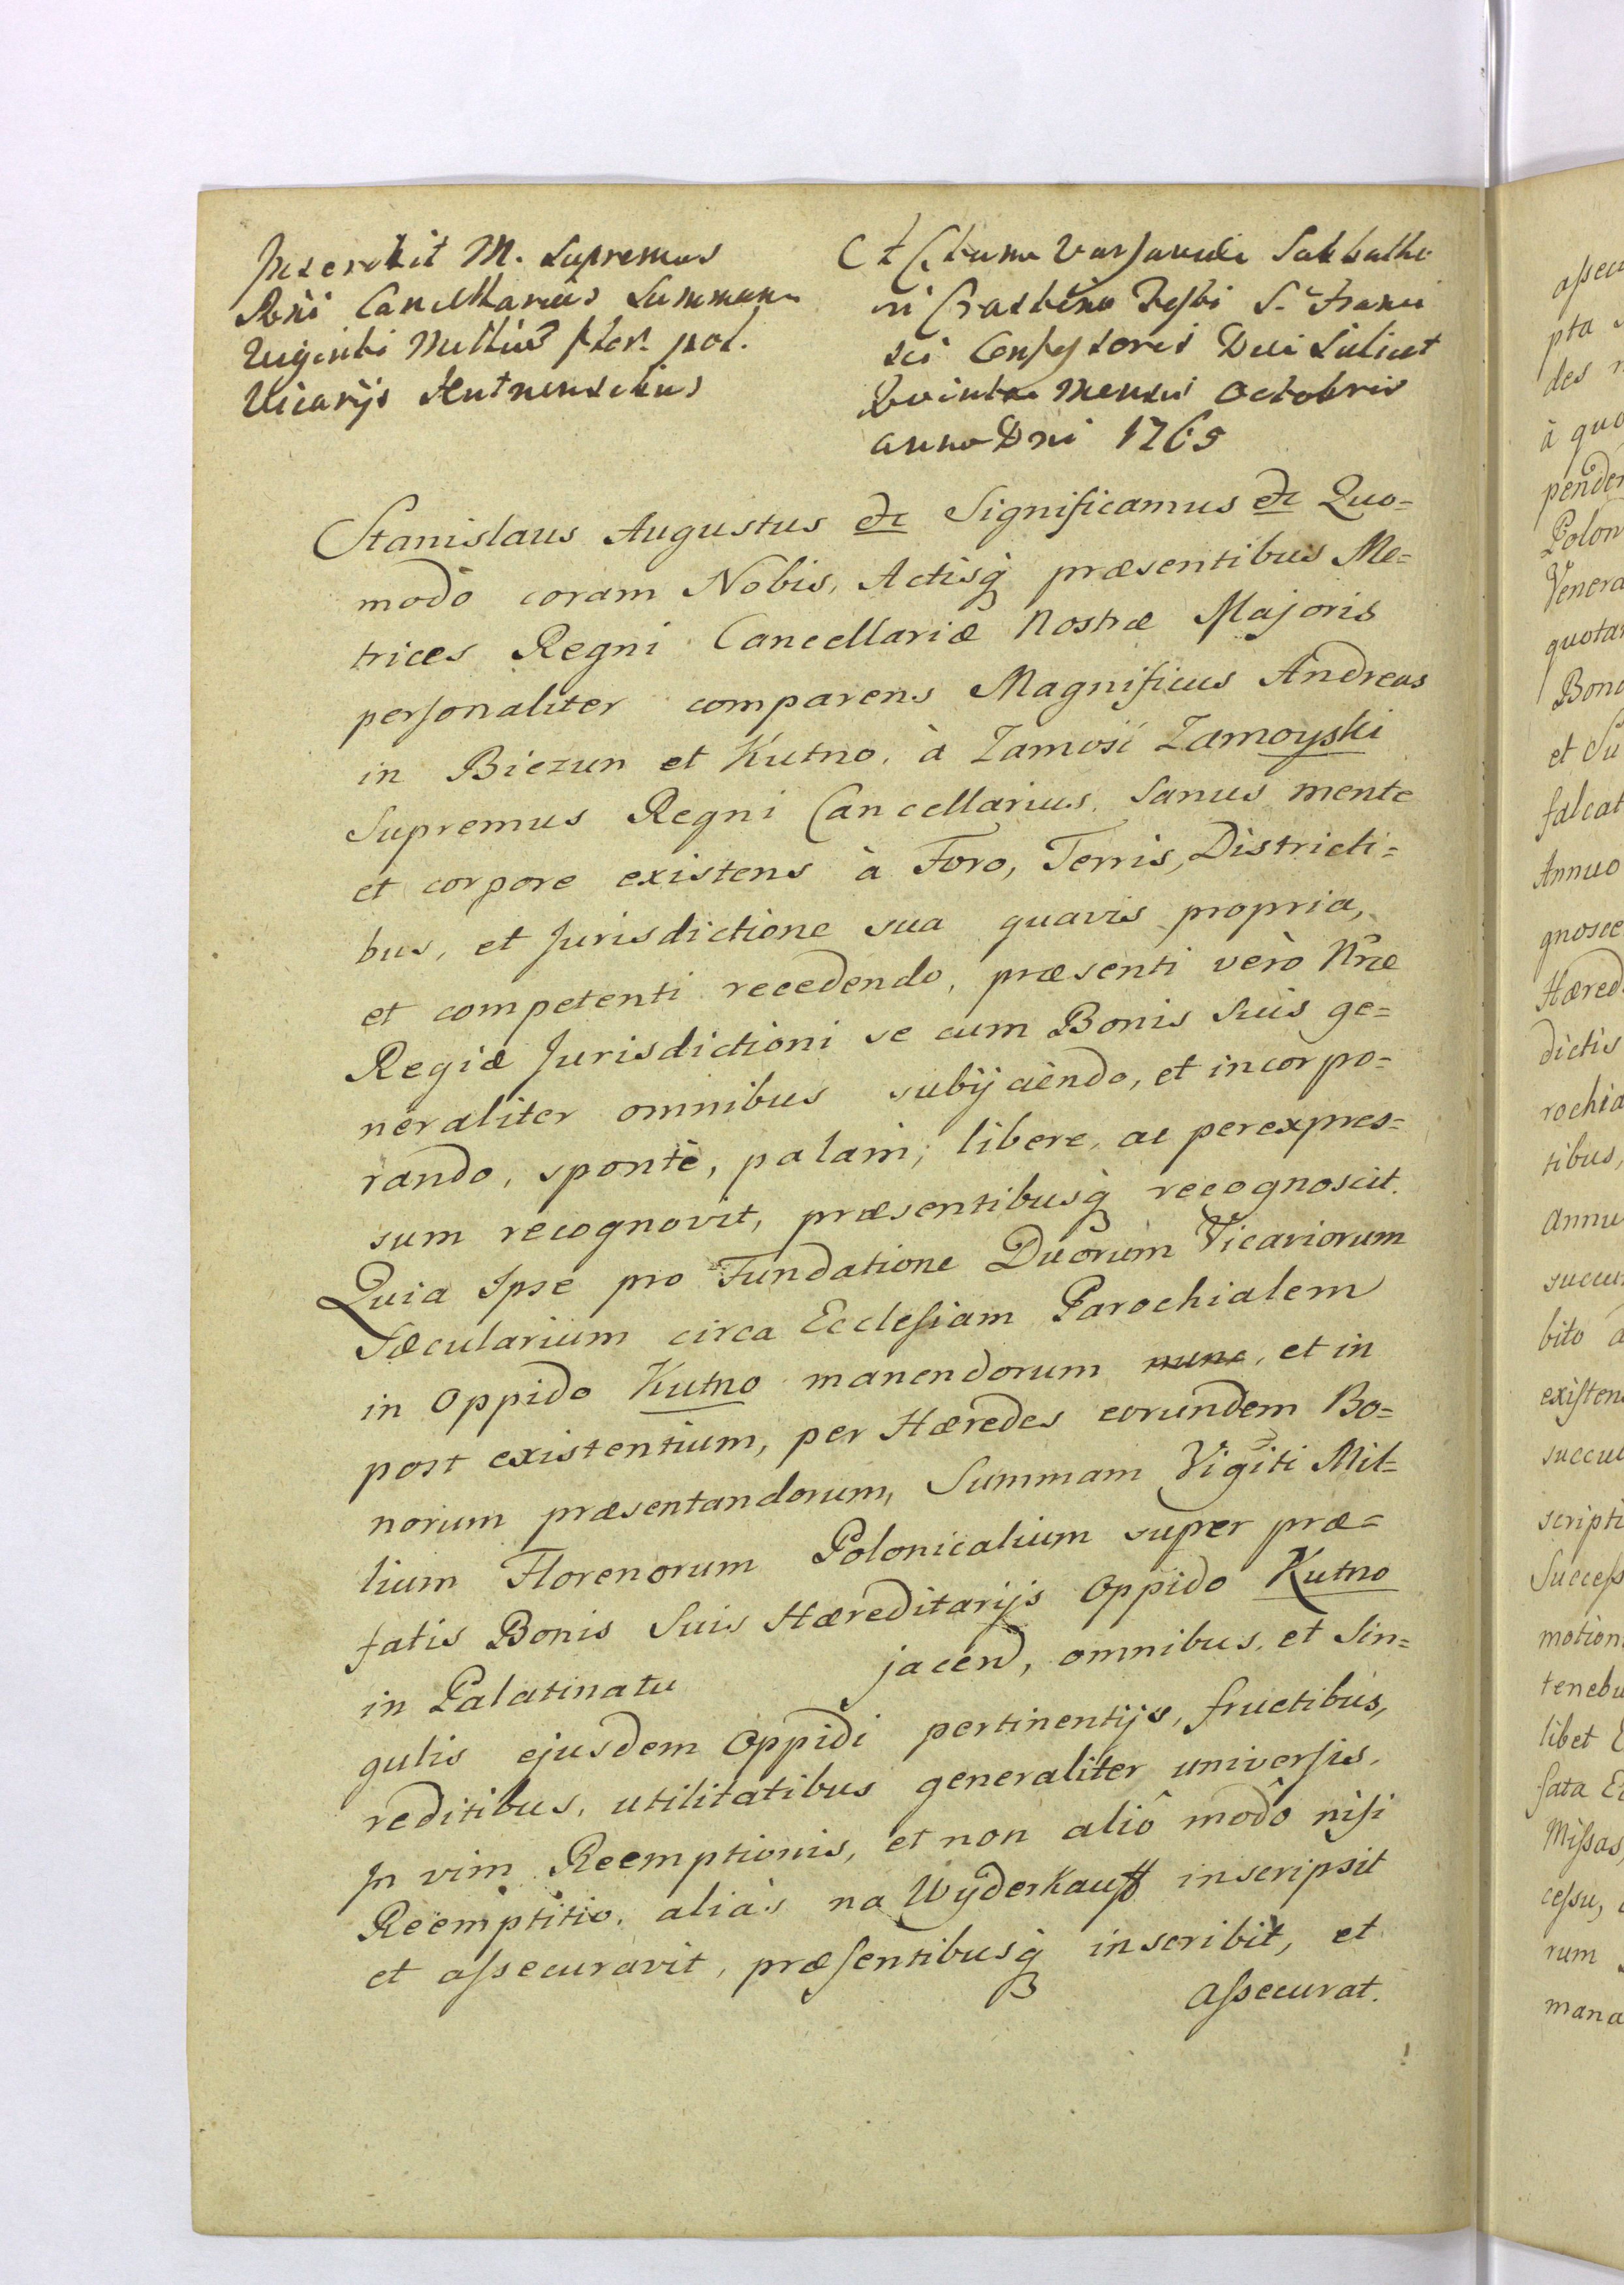 Inscribit M. Supremus
Rñi Cancellarius Summam
Viginti Millium flor. pol.
Vicarijs Kutnensibus
Actum Varsaviæ Sabbatho
in Crastino Festi S. Franci
sci Confessoris Die Scilicet
Quinta Mensis Octobris
anno Dni 1765
Stanislaus Augustus etc Significamus etc Quo=
modo coram Nobis, Actisq́ præsentibus Me=
trices Regni Cancellariæ Nostræ Majoris
personaliter comparens Magnificus Andreas
in Biezun et Kutno, à Zamosi Zamoyski
Supremus Regni Cancellarius. Sanus mente
et corpore existens à Foro, Terris, Districti=
bus, et Jurisdictione sua quavis propria,
et competenti recedendo, præsenti verò Nræ
Regiæ Jurisdictioni se cum Bonis Suis ge=
neraliter omnibus subijciendo, et incorpo=
rando, spontè, palam, libere, ac perexpres=
sum recognovit, præsentibusq́ recognoscit.
Quia Ipse pro Fundatione Duorum Vicariorum
Sæcularium circa Ecclesiam Parochialem
in Oppido Kutno manendorum nunc, et in
post existentium, per Hæredes eorundem Bo=
norum præsentandorum, Summam Vigiti Mil=
lium Florenorum Polonicalium super præ=
fatis Bonis Suis Hæreditarijs Oppido Kutno
in Palatinatu jacen, omnibus, et Sin=
gulis ejusdem Oppidi pertinentijs, fructibus,
reditibus, utilitatibus generaliter universis.
In vim Reemptionis, et non aliô modô nisi
Reemptitio, aliàs na Wyderkauff inscripsit
et assecuravit, præsentibusq́ inscribit, et
assecurat.
pta
des
à quo
Polon
Venera
et Su
Annuo
dictis
tibus,
bito
libet
fata
Missas,
cessu,
rum
mana